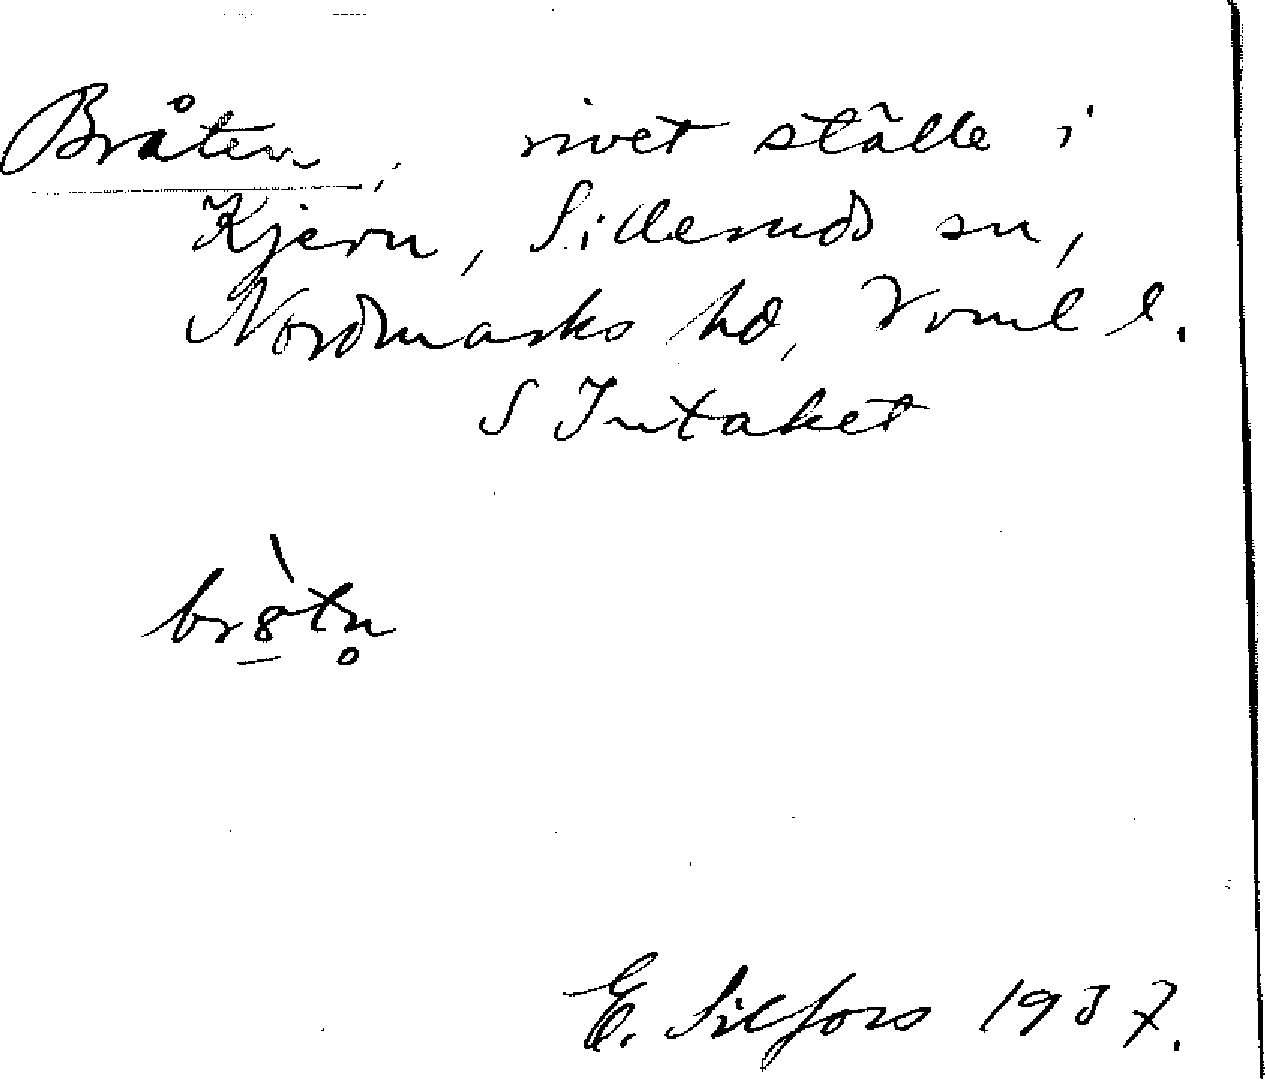 Bråten, rivet ställe i
Kjern, Silleruds sn,
Nordmarks hd, Vrml l.
S Intaket
br8̀tn̥
E. Silfors 1937.